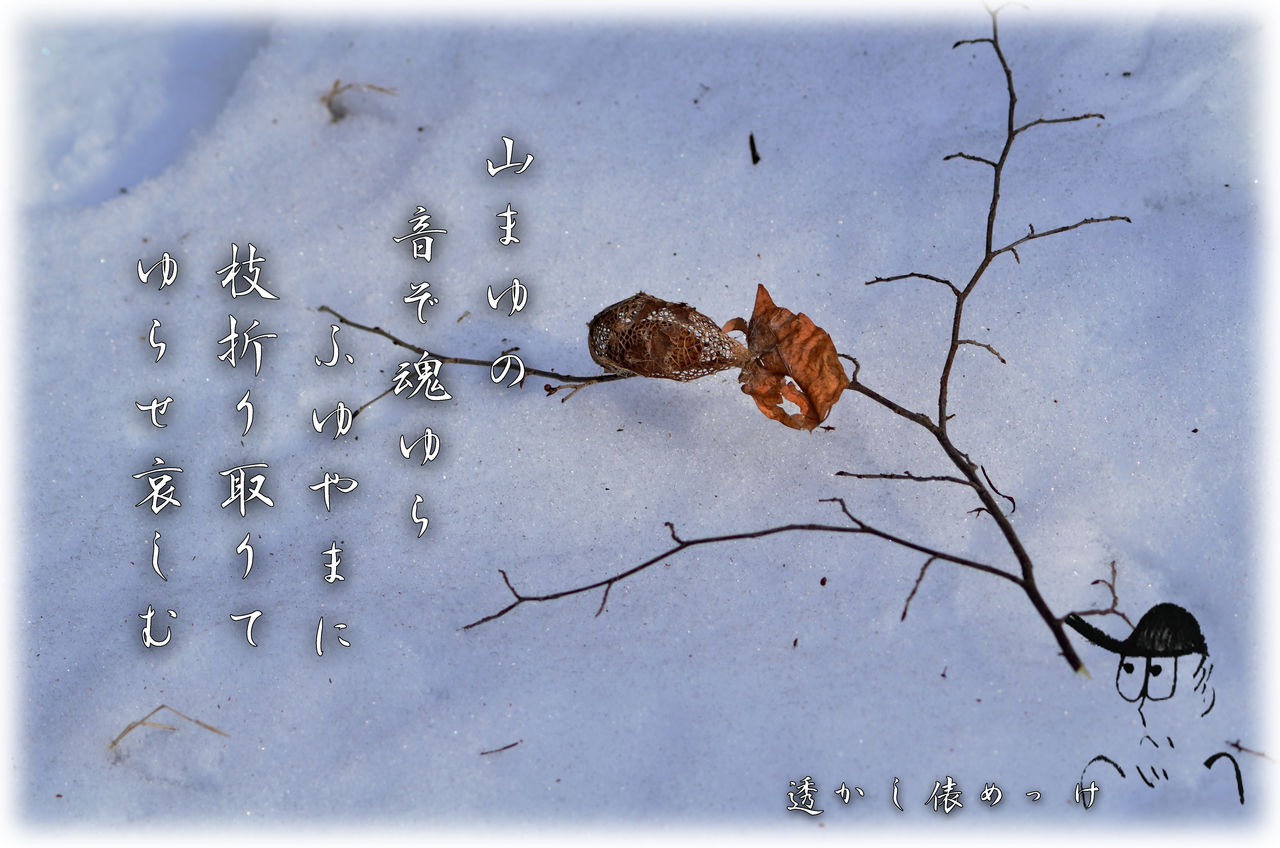 山まゆの
音ぞ魂ゆら
ふゆやまに
枝折り取りて
ゆらせ哀しむ
透かし俵めっけ